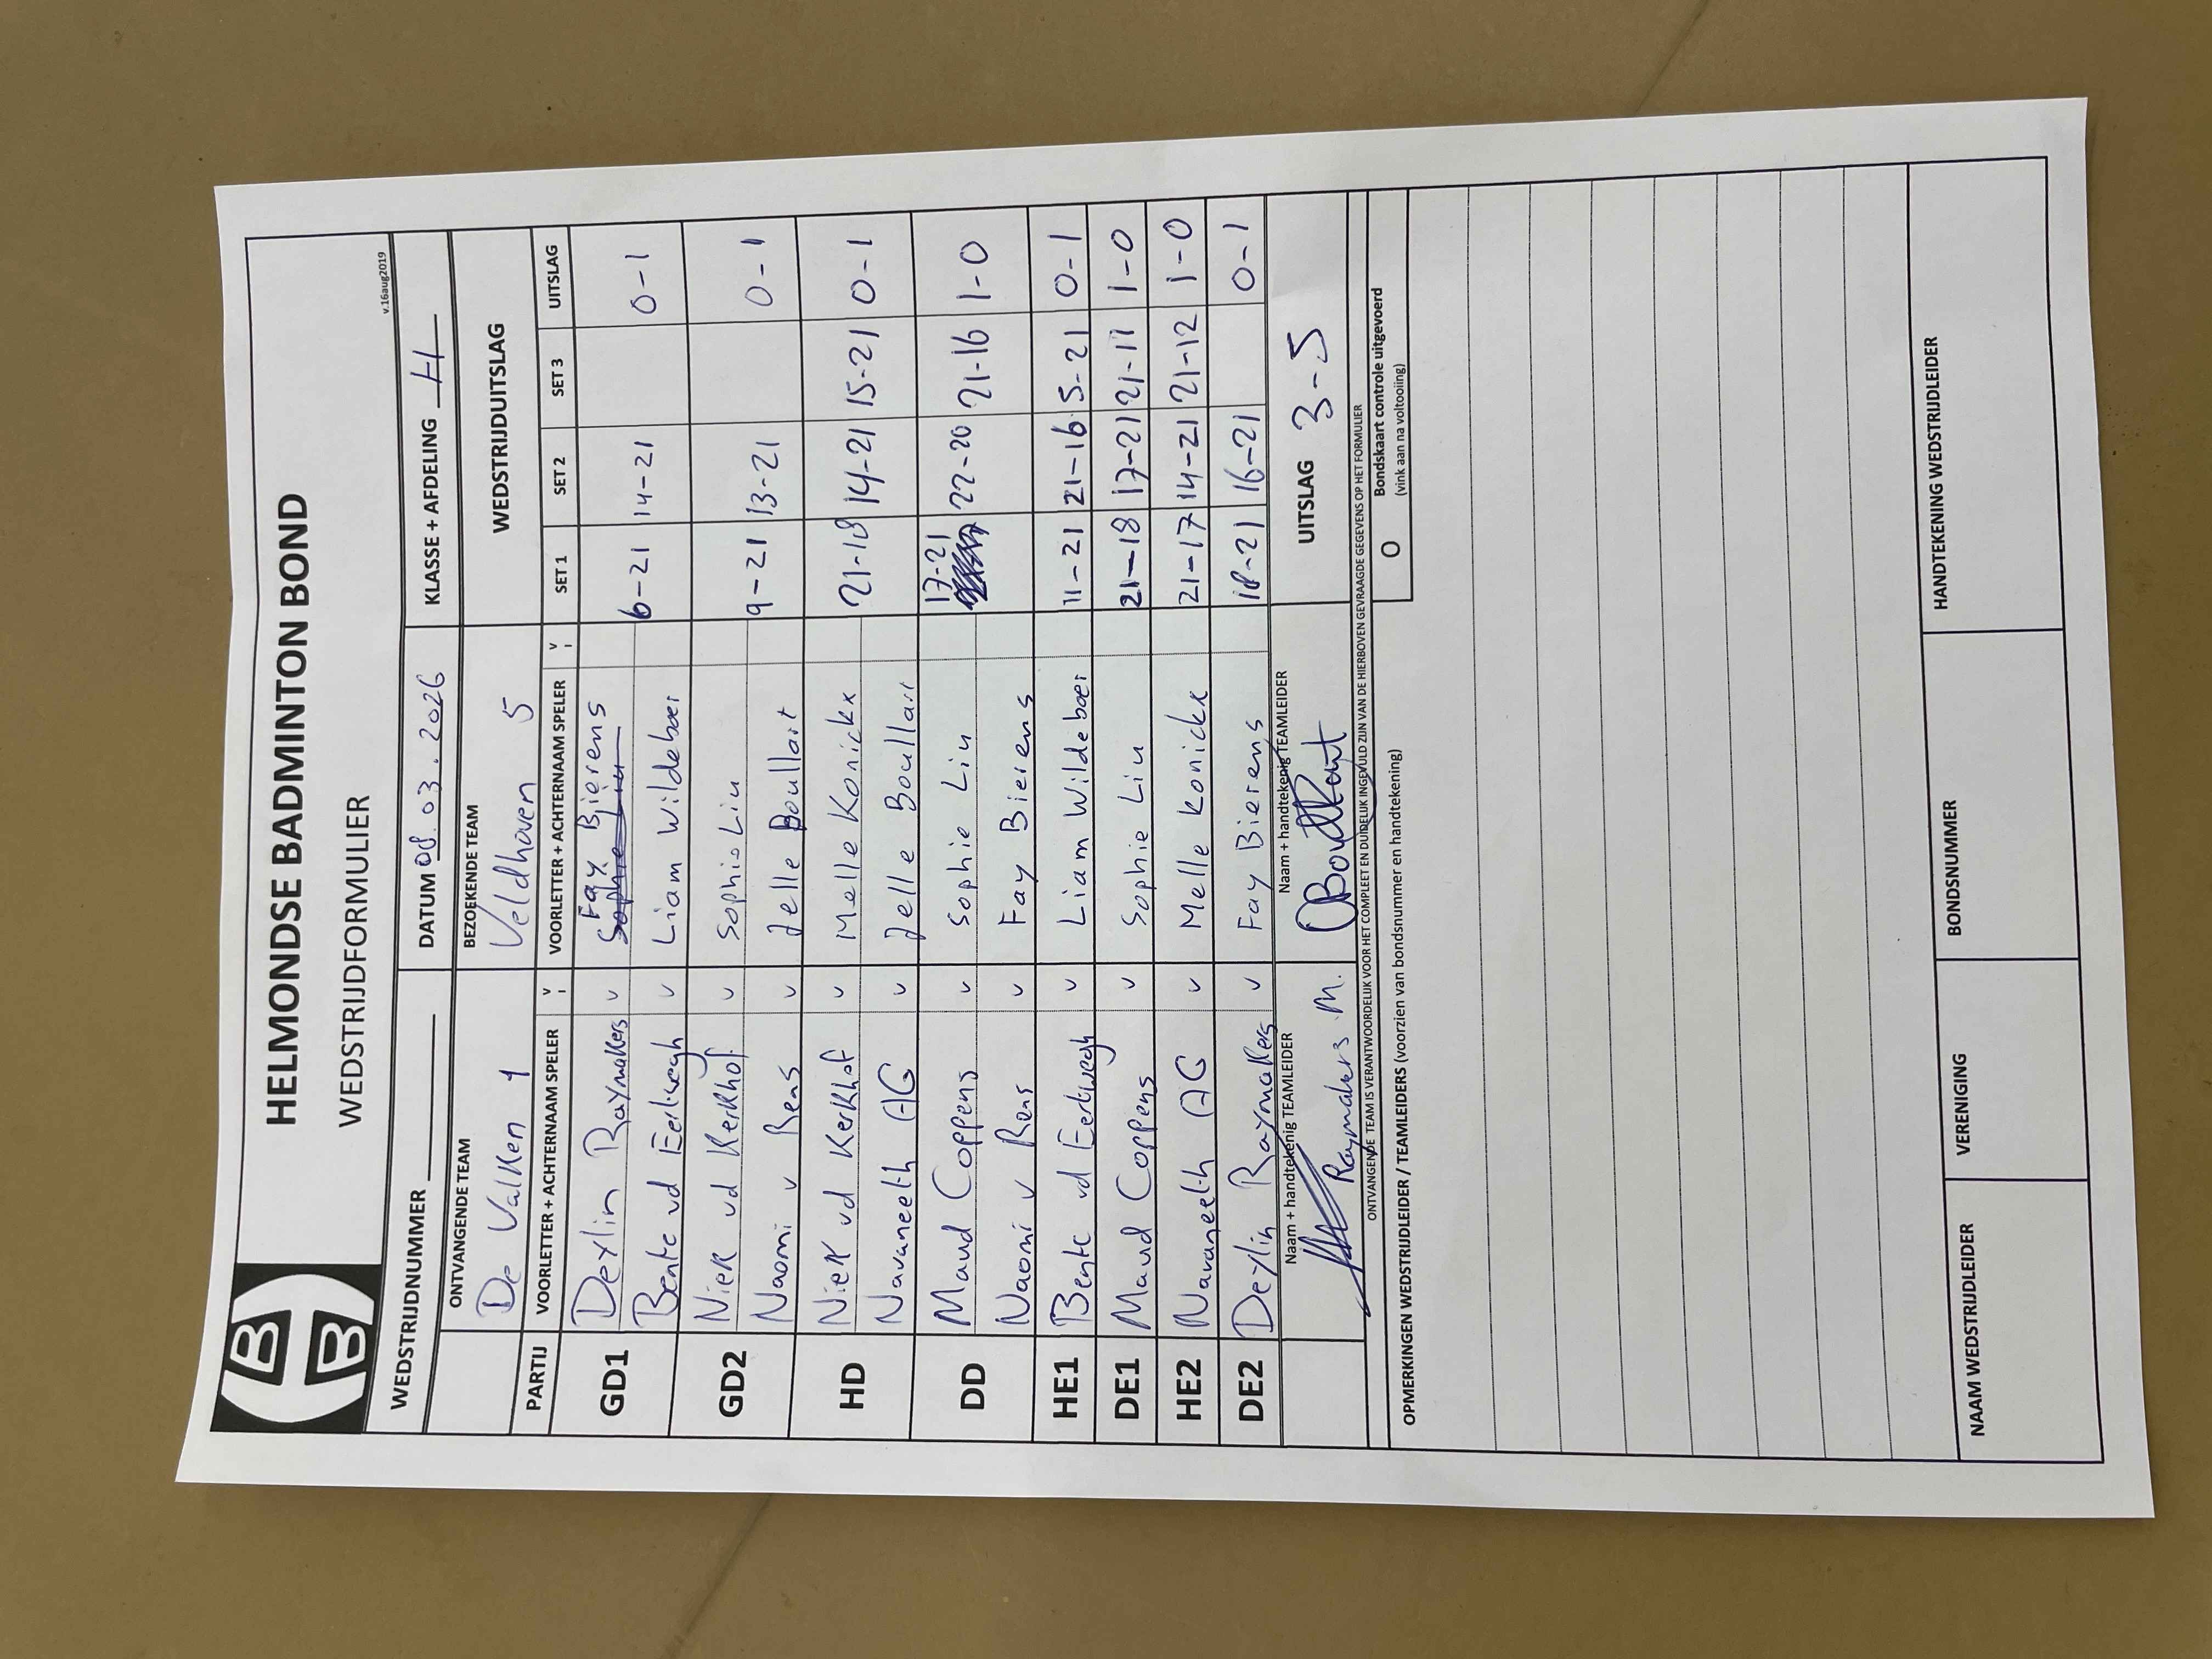 HELMONDSE BADMINTON BOND
WEDSTRIJDFORMULIER
v.16aug2019
WEDSTRIJDNUMMER DATUM 08.03.2026 KLASSE + AFDELING H
ONTVANGENDE TEAM BEZOEKENDE TEAM WEDSTRIJDUITSLAG
De Valken 1 Veldhoven 5
PARTIJ VOORLETTER + ACHTERNAAM SPELER V I VOORLETTER + ACHTERNAAM SPELER V I SET 1 SET 2 SET 3 UITSLAG
GD1 Deylin Raymakers v Fay Bierens Sophie Liu 6-21 14-21 0-1
Bente vd Eerlwegh v Liam Wildeboer
GD2 Niek vd Kerkhof v Sophie Liu 9-21 13-21 0-1
Naomi v Rens v Jelle Boullart
HD Niek vd Kerkhof v Melle Konickx 21-18 14-21 15-21 0-1
Navaneeth AG v Jelle Boullart
DD Maud Coppens v Sophie Liu 17-21 22-20 21-16 1-0
Naomi v Rens v Fay Bierens
HE1 Bente vd Eerlwegh v Liam Wildeboer 11-21 21-16 5-21 0-1
DE1 Maud Coppens v Sophie Liu 21-18 17-21 21-11 1-0
HE2 Navaneeth AG v Melle Konickx 21-17 14-21 21-12 1-0
DE2 Deylin Raymakers v Fay Bierens 18-21 16-21 0-1
Naam + handtekenig TEAMLEIDER Naam + handtekenig TEAMLEIDER UITSLAG 3-5
Raymakers M.
ONTVANGENDE TEAM IS VERANTWOORDELIJK VOOR HET COMPLEET EN DUIDELIJK INGEVULD ZIJN VAN DE HIERBOVEN GEVRAAGDE GEGEVENS OP HET FORMULIER
OPMERKINGEN WEDSTRIJDLEIDER / TEAMLEIDERS (voorzien van bondsnummer en handtekening)
O Bondskaart controle uitgevoerd
(vink aan na voltooiing)
NAAM WEDSTRIJDLEIDER VERENIGING BONDSNUMMER HANDTEKENING WEDSTRIJDLEIDER